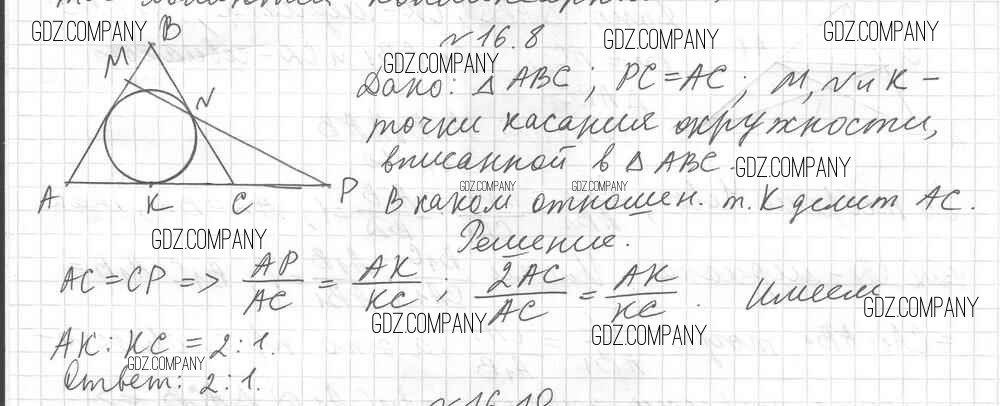 GDZ.COMPANY
B
N 16.8
GDZ.COMPANY
GDZ.COMPANY
M
GDZ.COMPANY
Дано: △ ABC ; PC = AC ; M, N и K –
N
точки касания окружности,
вписанной в △ ABC.
GDZ.COMPANY
A K C P
GDZ.COMPANY GDZ.COMPANY
В каком отношен. т. K делит AC.
GDZ.COMPANY
Решение.
AC = CP => AP/AC = AK/KC ; 2AC/AC = AK/KC . Имеем
GDZ.COMPANY
GDZ.COMPANY
GDZ.COMPANY
AK : KC = 2 : 1.
GDZ.COMPANY
Ответ: 2 : 1.